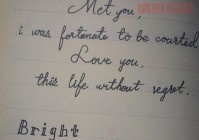 Met you,
i was fortunate to be courted
Love you,
this life without regret.
Bright